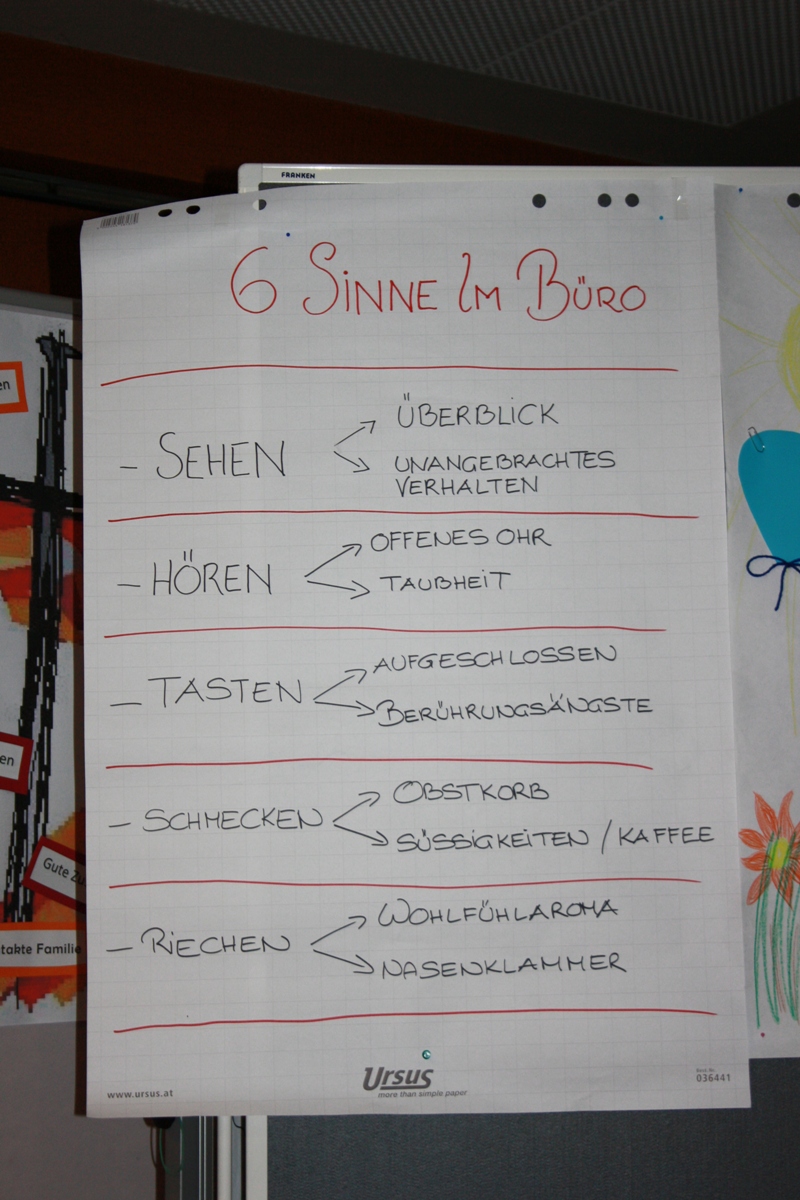 FRANKEN
6 SINNE IM BÜRO
- SEHEN
ÜBERBLICK
UNANGEBRACHTES
VERHALTEN
- HÖREN
OFFENES OHR
TAUBHEIT
- TASTEN
AUFGESCHLOSSEN
BERÜHRUNGSÄNGSTE
- SCHMECKEN
OBSTKORB
SÜSSIGKEITEN / KAFFEE
- RIECHEN
WOHLFÜHLAROMA
NASENKLAMMER
www.ursus.at
Ursus
more than simple paper
036441
en
en
Gute Zu
takte Familie